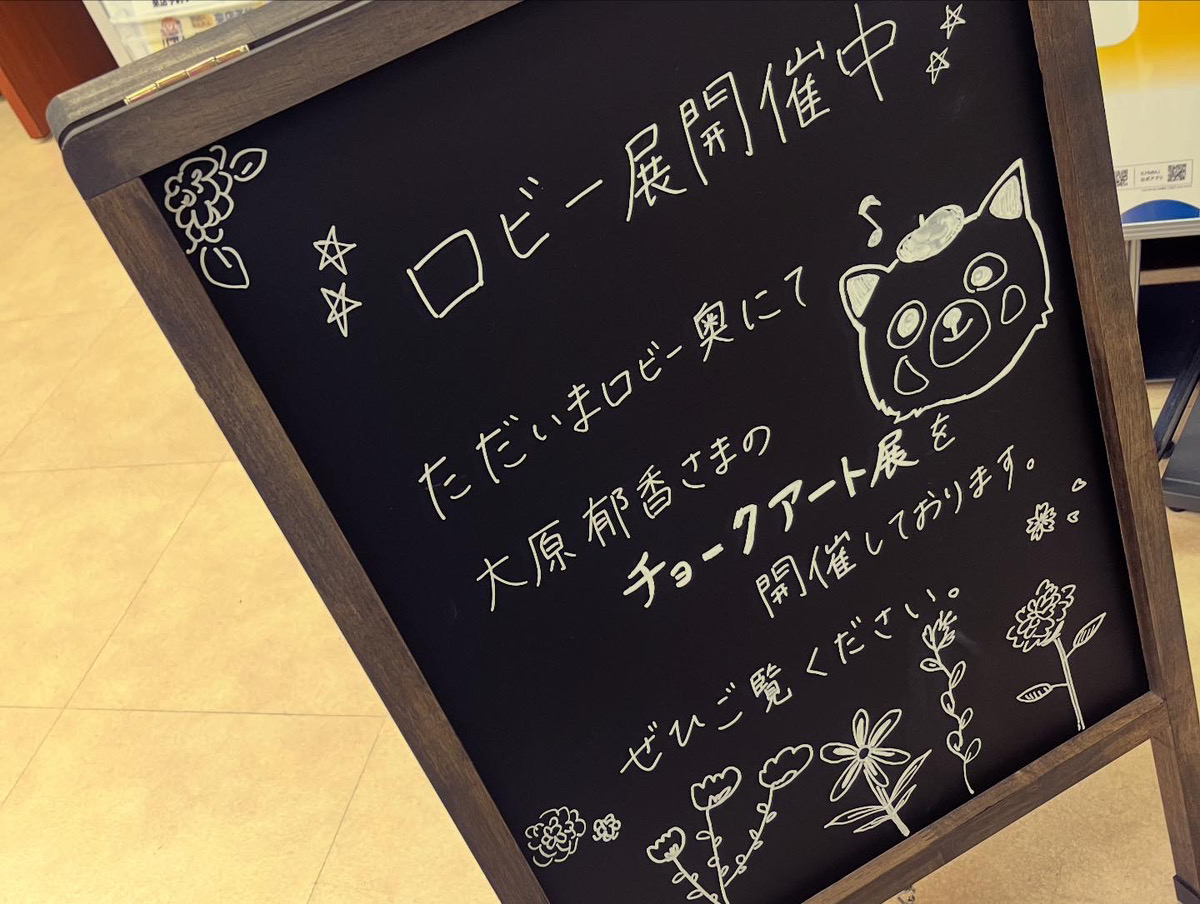 ロビー展開催中
ただいまロビー奥にて
大原郁香さまの
チョークアート展を
開催しております。
ぜひご覧ください。